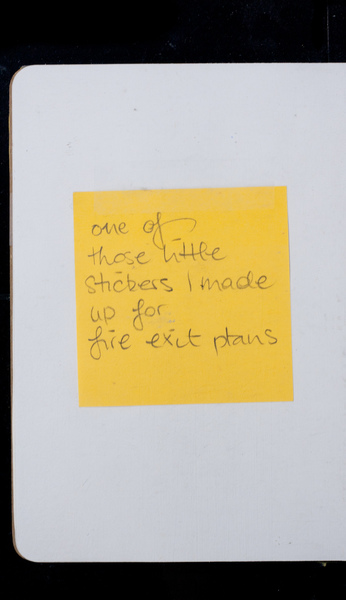 one of
those little
stickers I made
up for
fire exit plans